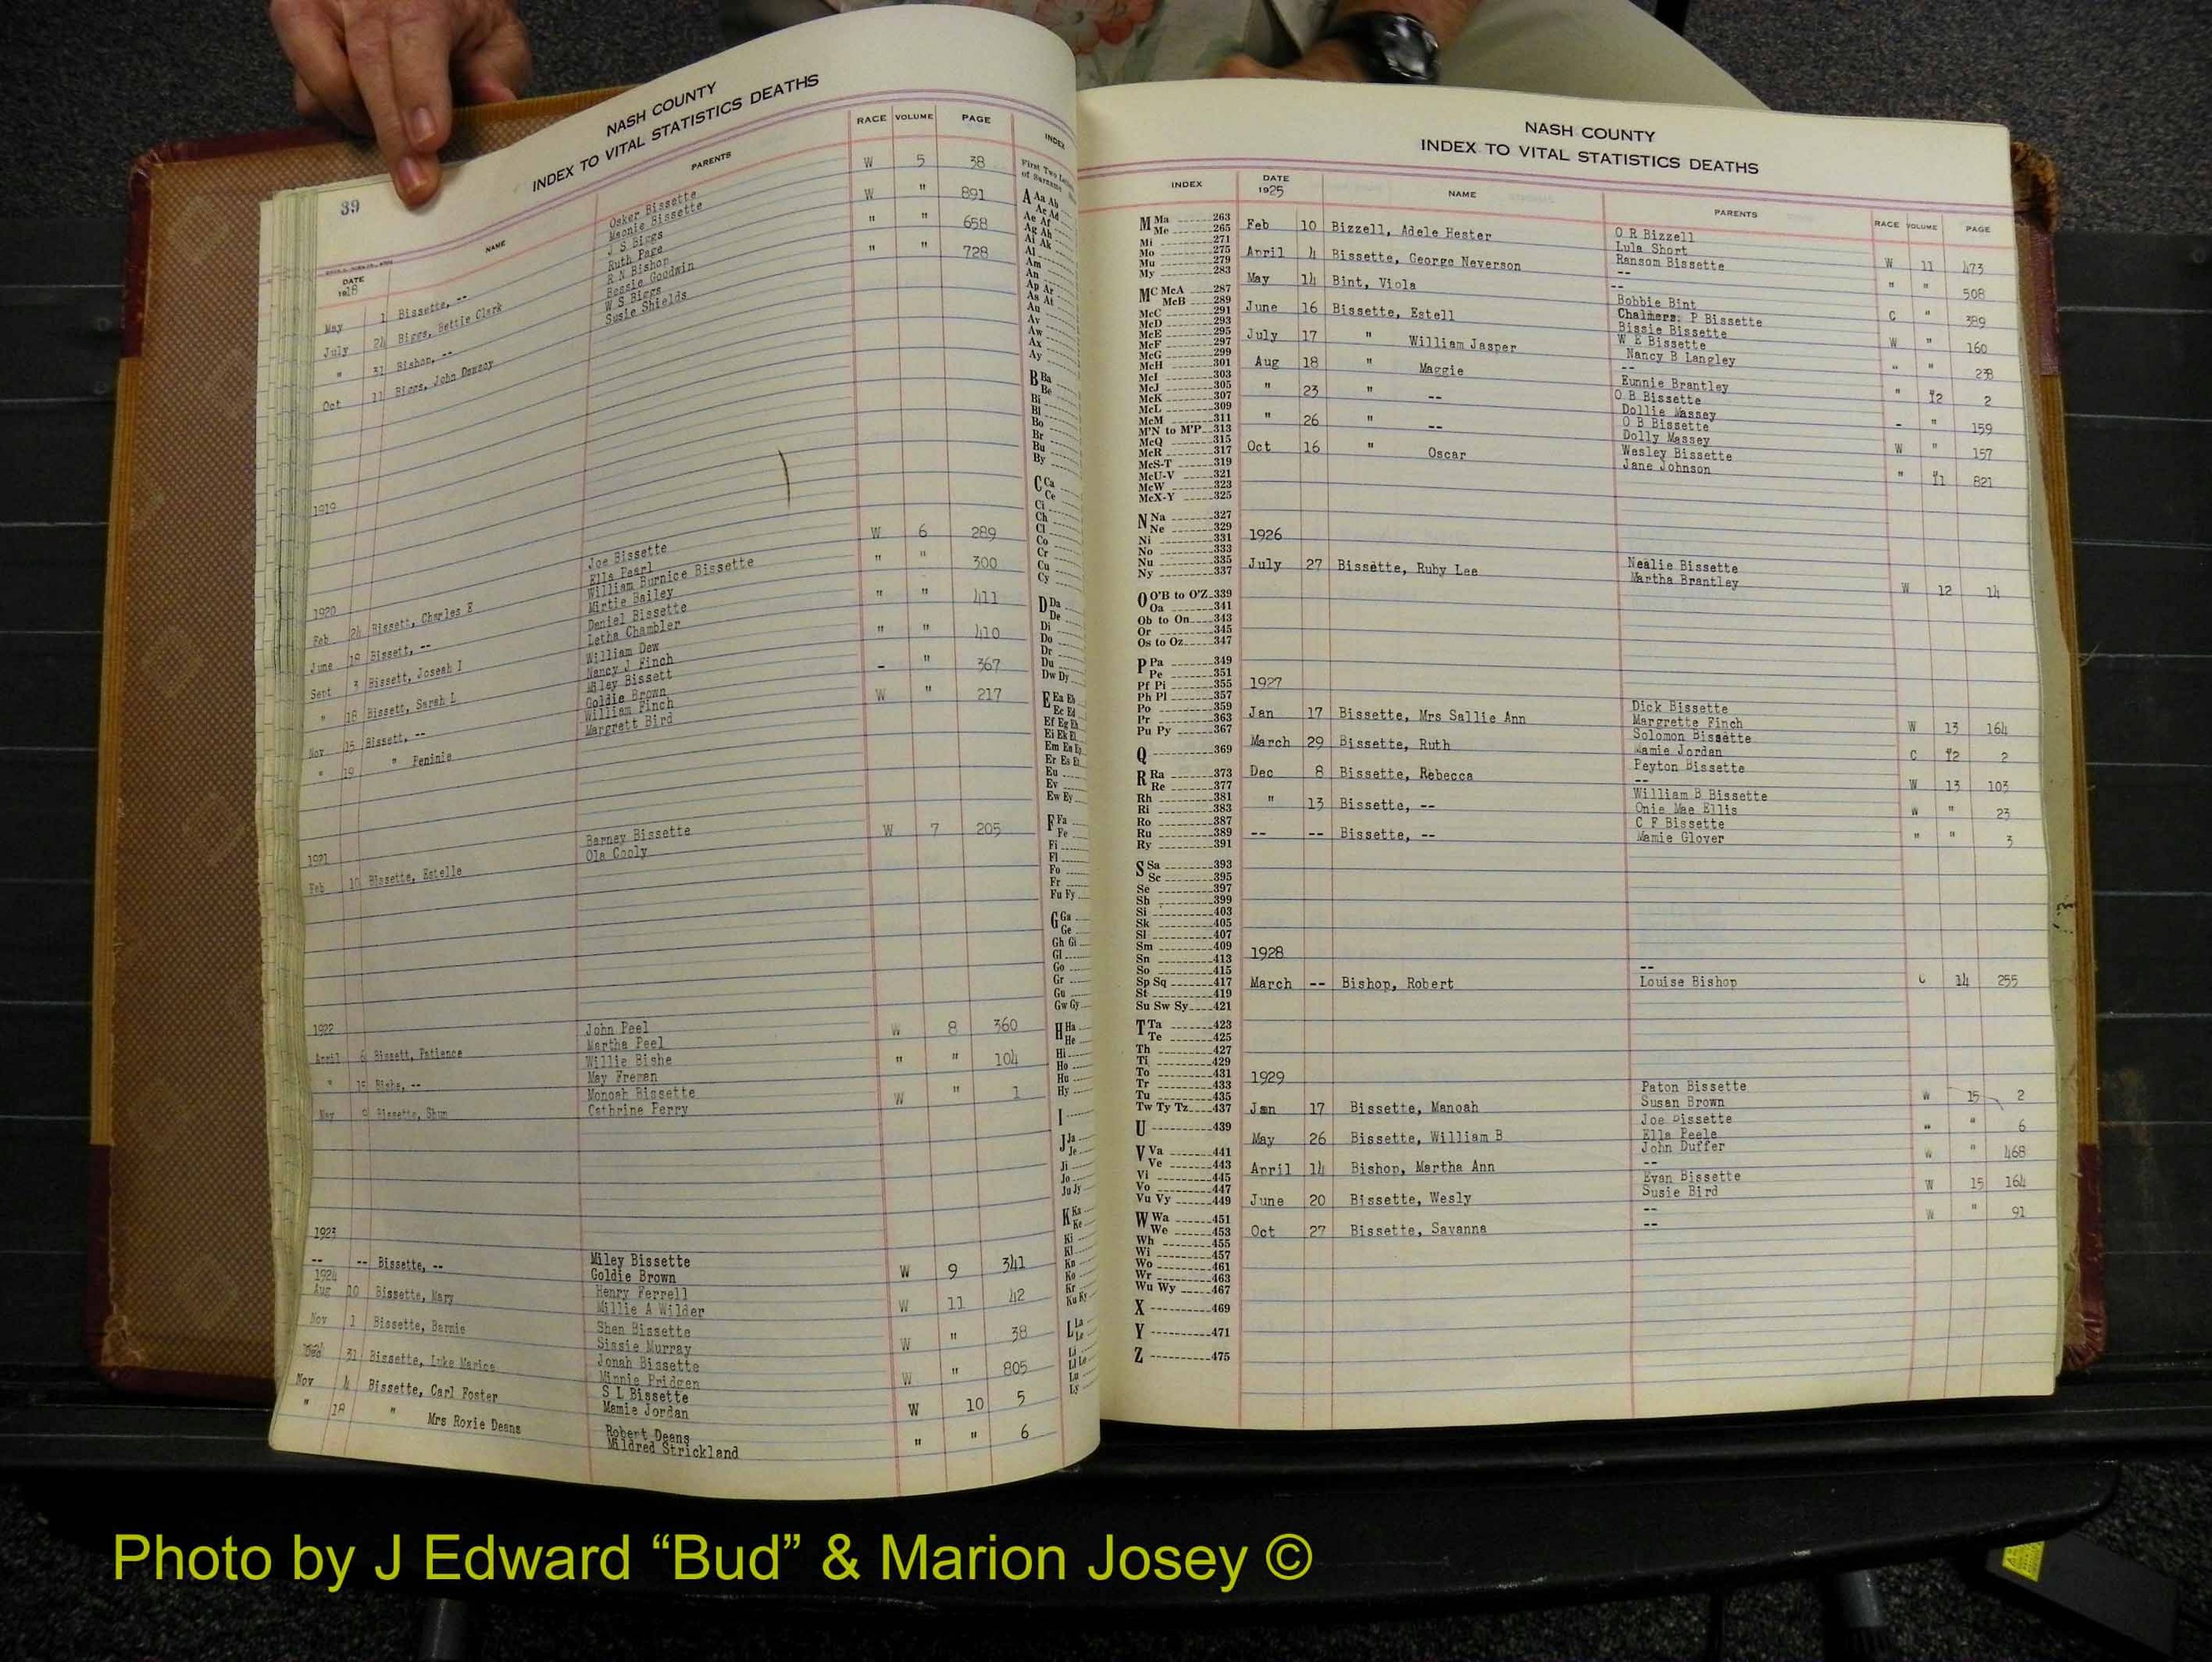 39
NASH COUNTY
INDEX TO VITAL STATISTICS DEATHS
DATE NAME PARENTS RACE VOLUME PAGE
1918
May 1 Bissette, -- Osker Bissette W 5 38
Maonie Bissette
July 24 Biggs, Bettie Clark J S Biggs W " 891
Ruth Page
" 31 Bishop, -- R N Bishop " " 658
Bessie Goodwin
Oct 11 Biggs, John Dawsey W S Biggs " " 728
Susie Shields
1919
1920
Feb 24 Bissett, Charles E Joe Bissette W 6 289
Ella Pearl
June 19 Bissett, -- William Burnice Bissette " " 300
Mirtie Bailey
Sept 3 Bissett, Joseah I Daniel Bissette " " 411
Letha Chambler
" 18 Bissett, Sarah L William Dew " " 410
Nancy J Finch
Nov 15 Bissett, -- Miley Bissett - " 367
Goldie Brown
" 19 " Peninie William Finch W " 217
Margrett Bird
1921
Feb 10 Bissette, Estelle Barney Bissette W 7 205
Ola Cooly
1922
April 6 Bissett, Patience John Peel W 8 360
Martha Peel
" 15 Bishe, -- Willie Bishe " " 104
May Freman
May 9 Bissette, Shun Monoah Bissette W " 1
Cathrine Perry
1923
-- -- Bissette, -- Miley Bissette W 9 341
Goldie Brown
1924
Aug 10 Bissette, Mary Henry Ferrell W 11 42
Millie A Wilder
Nov 1 Bissette, Barnie Shen Bissette W " 38
Sissie Murray
Dec 31 Bissette, Luke Marice Jonah Bissette W " 805
Minnie Pridgen
Nov 4 Bissette, Carl Foster S L Bissette W 10 5
Mamie Jordan
" 18 " Mrs Roxie Deans Robert Deans " " 6
Mildred Strickland
INDEX
First Two
of Surname
A Aa Ab
Ac Ad
Ae Af
Ag Ah
Ai Ak
Al
Am
An
Ap Ar
As At
Au
Av
Aw
Ax
Ay
B Ba
Be
Bi
Bl
Bo
Br
Bu
By
C Ca
Ce
Ci
Ch
Cl
Co
Cr
Cu
Cy
D Da
De
Di
Do
Dr
Du
Dw Dy
E Ea Eb
Ec Ed
Ef Eg Eh
Ei Ek El
Em En Ep
Er Es Et
Eu
Ev
Ew Ey
F Fa
Fe
Fi
Fl
Fo
Fr
Fu Fy
G Ga
Ge
Gh Gi
Gl
Go
Gr
Gu
Gw Gy
H Ha
He
Hi
Ho
Hu
Hy
I
J Ja
Je
Ji
Jo
Ju Jy
K Ka
Ke
Ki
Kl
Kn
Ko
Kr
Ku Ky
L La
Le
Li
Ll Lo
Lu
Ly
NASH COUNTY
INDEX TO VITAL STATISTICS DEATHS
INDEX DATE NAME PARENTS RACE VOLUME PAGE
1925
M Ma 263
Me 265
Mi 271
Mo 275
Mu 279
My 283
MC McA 287
McB 289
McC 291
McD 293
McE 295
McF 297
McG 299
McH 301
McI 303
McJ 305
McK 307
McL 309
McM 311
M'N to M'P 313
McQ 315
McR 317
McS-T 319
McU-V 321
McW 323
McX-Y 325
N Na 327
Ne 329
Ni 331
No 333
Nu 335
Ny 337
O O'B to O'Z 339
Oa 341
Ob to On 343
Or 345
Os to Oz 347
P Pa 349
Pe 351
Pf Pi 355
Ph Pl 357
Po 359
Pr 363
Pu Py 367
Q 369
R Ra 373
Re 377
Rh 381
Ri 383
Ro 387
Ru 389
Ry 391
S Sa 393
Sc 395
Se 397
Sh 399
Si 403
Sk 405
Sl 407
Sm 409
Sn 413
So 415
Sp Sq 417
St 419
Su Sw Sy 421
T Ta 423
Te 425
Th 427
Ti 429
To 431
Tr 433
Tu 435
Tw Ty Tz 437
U 439
V Va 441
Ve 443
Vi 445
Vo 447
Vu Vy 449
W Wa 451
We 453
Wh 455
Wi 457
Wo 461
Wr 463
Wu Wy 467
X 469
Y 471
Z 475
Feb 10 Bizzell, Adele Hester O R Bizzell W 11 473
Lula Short
April 4 Bissette, George Neverson Ransom Bissette " " 508
--
May 14 Bint, Viola -- C " 389
Bobbie Bint
June 16 Bissette, Estell Chalmers P Bissette W " 160
Bissie Bissette
July 17 " William Jasper W E Bissette " " 238
Nancy B Langley
Aug 18 " Maggie -- " 12 2
Eunnie Brantley
" 23 " -- O B Bissette - " 159
Dollie Massey
" 26 " -- O B Bissette W " 157
Dolly Massey
Oct 16 " Oscar Wesley Bissette " 11 821
Jane Johnson
1926
July 27 Bissette, Ruby Lee Nealie Bissette W 12 14
Martha Brantley
1927
Jan 17 Bissette, Mrs Sallie Ann Dick Bissette W 13 164
Margrette Finch
March 29 Bissette, Ruth Solomon Bissette C 12 2
Mamie Jordan
Dec 8 Bissette, Rebecca Peyton Bissette W 13 103
--
" 13 Bissette, -- William B Bissette W " 23
Onie Mae Ellis
-- -- Bissette, -- C F Bissette " " 3
Mamie Glover
1928
March -- Bishop, Robert -- C 14 255
Louise Bishop
1929
Jan 17 Bissette, Manoah Paton Bissette W 15 2
Susan Brown
May 26 Bissette, William B Joe Bissette " " 6
Ella Peele
April 14 Bishop, Martha Ann John Duffer W " 468
--
June 20 Bissette, Wesly Evan Bissette W 15 164
Susie Bird
Oct 27 Bissette, Savanna -- W " 91
--
Photo by J Edward “Bud” & Marion Josey ©